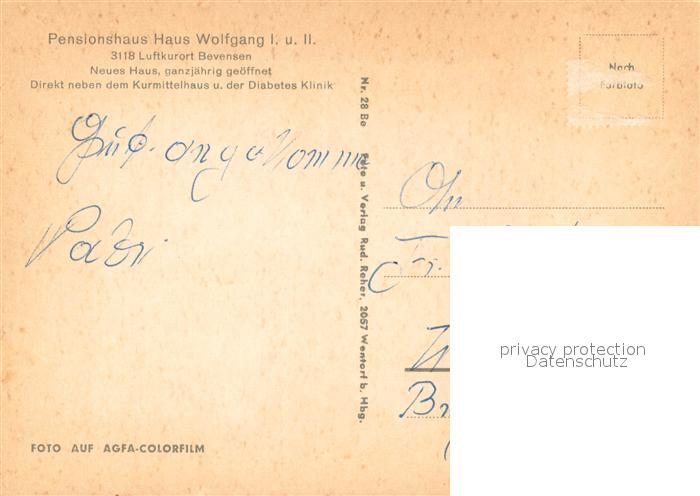 Pensionshaus Haus Wolfgang I. u. II.
3118 Luftkurort Bevensen
Neues Haus, ganzjährig geöffnet
Direkt neben dem Kurmittelhaus u. der Diabetes Klinik
Gut angekommen
FOTO AUF AGFA-COLORFILM
Nr. 28 Be Foto u. Verlag Rud. Reher, 2057 Wentorf b. Hbg.
Nach
Farbfoto
An
Fr.
privacy protection
Datenschutz